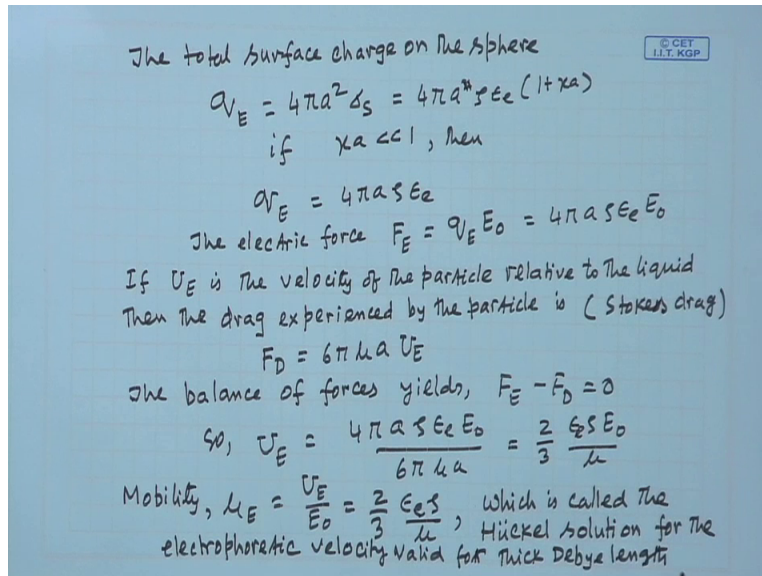 The total surface charge on the sphere
© CET
I.I.T. KGP
q_E = 4πa² σ_s = 4πa ζ ε_e (1+κa)
if κa << 1, then
q_E = 4πaζε_e
The electric force F_E = q_E E_0 = 4πaζε_e E_0
If U_E is the velocity of the particle relative to the liquid
Then the drag experienced by the particle is (Stokess drag)
F_D = 6πμa U_E
The balance of forces yields, F_E - F_D = 0
So, U_E = 4πaζε_e E_0 / 6πμa = 2/3 ε_e ζ E_0 / μ
Mobility, μ_E = U_E / E_0 = 2/3 ε_e ζ / μ, which is called the
Hückel solution for the
electrophoretic velocity valid for thick Debye length